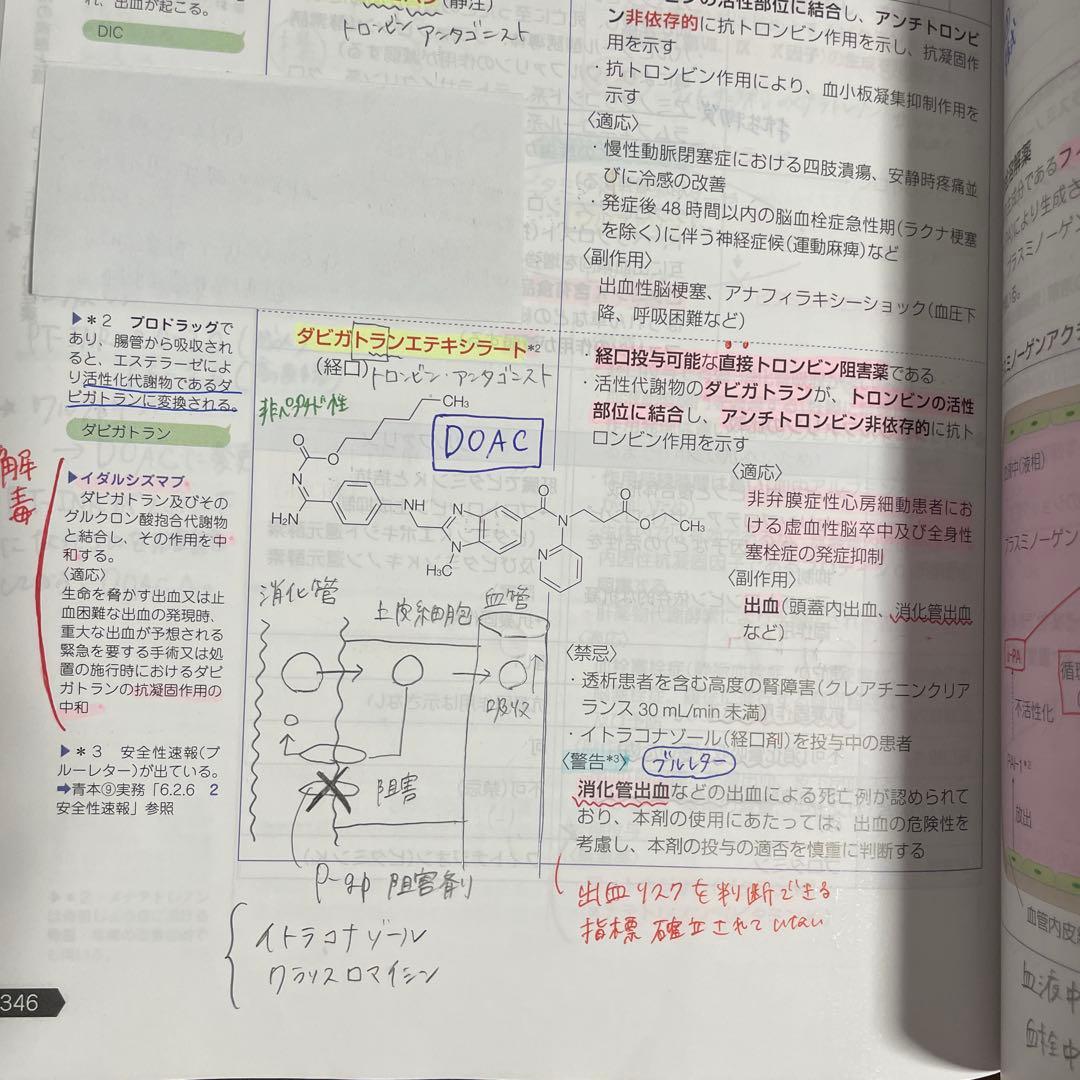 れ、出血が起こる。
DIC
(静注)
トロンビン アンタゴニスト
の活性部位に結合し、アンチトロンビ
ン非依存的に抗トロンビン作用を示し、抗凝固作
用を示す
・抗トロンビン作用により、血小板凝集抑制作用を
示す
〈適応〉
・慢性動脈閉塞症における四肢潰瘍、安静時疼痛並
びに冷感の改善
・発症後48時間以内の脳血栓症急性期(ラクナ梗塞
を除く)に伴う神経症候(運動麻痺)など
〈副作用〉
出血性脳梗塞、アナフィラキシーショック(血圧下
降、呼吸困難など)
▶＊2 プロドラッグで
あり、腸管から吸収され
ると、エステラーゼによ
り活性化代謝物であるダ
ビガトランに変換される。
ダビガトラン
解毒
▶イダルシズマブ
ダビガトラン及びその
グルクロン酸抱合代謝物
と結合し、その作用を中
和する。
〈適応〉
生命を脅かす出血又は止
血困難な出血の発現時、
重大な出血が予想される
緊急を要する手術又は処
置の施行時におけるダビ
ガトランの抗凝固作用の
中和
▶＊3 安全性速報(ブ
ルーレター)が出ている。
➡青本⑨実務「6.2.6 2
安全性速報」参照
ダビガトランエテキシラート*2
(経口)トロンビン・アンタゴニスト
非ペプチド性
DOAC
CH₃
O
O
N
H₂N
NH
N
N
H₃C
O
N
N
O
O
CH₃
消化管
上皮細胞
血管
吸収
阻害
P-gp 阻害剤
イトラコナゾール
クラリスロマイシン
・経口投与可能な直接トロンビン阻害薬である
・活性代謝物のダビガトランが、トロンビンの活性
部位に結合し、アンチトロンビン非依存的に抗ト
ロンビン作用を示す
〈適応〉
非弁膜症性心房細動患者にお
ける虚血性脳卒中及び全身性
塞栓症の発症抑制
〈副作用〉
出血(頭蓋内出血、消化管出血
など)
〈禁忌〉
・透析患者を含む高度の腎障害(クレアチニンクリア
ランス30 mL/min未満)
・イトラコナゾール(経口剤)を投与中の患者
〈警告*3〉 ブルレター
消化管出血などの出血による死亡例が認められて
おり、本剤の使用にあたっては、出血の危険性を
考慮し、本剤の投与の適否を慎重に判断する
出血リスクを判断できる
指標 確立されていない
346
溶解薬
成分であるフィ
により生成さ
プラスミノーゲン
ミノーゲンアクチ
プラスミノーゲン
t-PA
循環
不活性化
PAI-1*2
放出
血管内皮細
血液中
血栓中